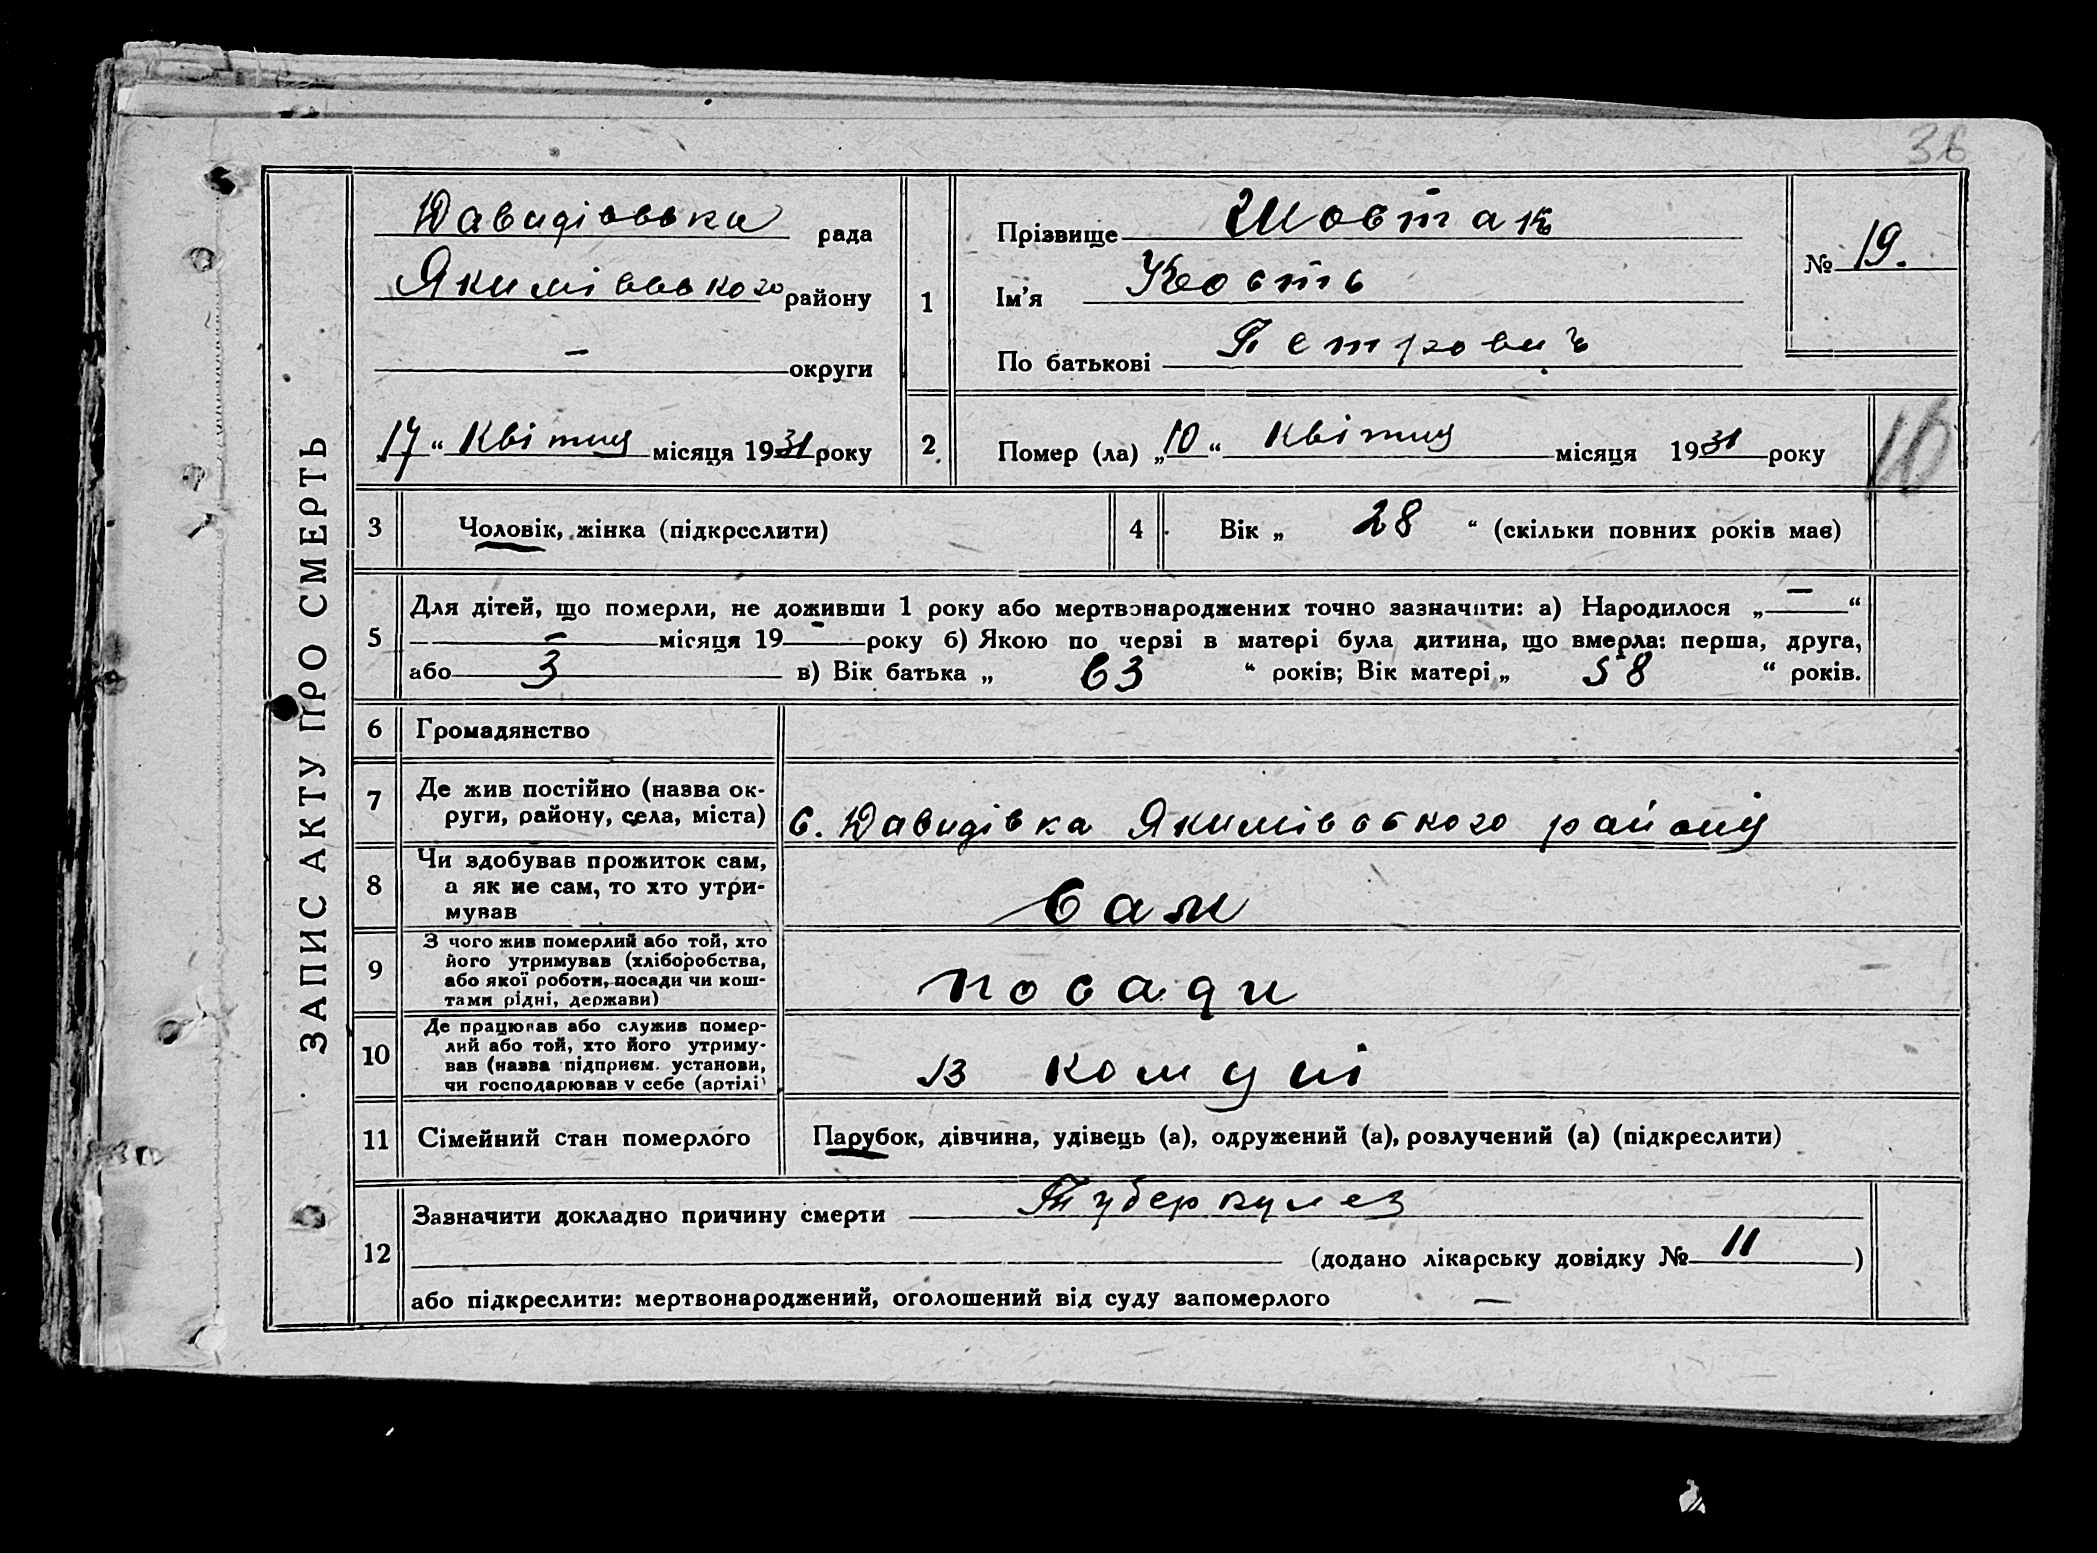 36
ЗАПИС АКТУ ПРО СМЕРТЬ
Давидівська рада
Якимівського району
— округи
„17“ Квітня місяця 1931 року
1
Прізвище Шостак
Ім'я Кость
По батькові Петрович
№ 19.
2
Помер (ла) „10“ Квітня місяця 1931 року
10
3 Чоловік, жінка (підкреслити)
4 Вік „ 28 “ (скільки повних років має)
5
Для дітей, що померли, не доживши 1 року або мертвонароджених точно зазначити: а) Народилося „ — “
— місяця 19 - року б) Якою по черзі в матері була дитина, що вмерла: перша, друга,
або 3 в) Вік батька „ 63 “ років; Вік матері „ 58 “ років.
6 Громадянство
7 Де жив постійно (назва ок-
руги, району, села, міста) с. Давидівка Якимівського району
8 Чи здобував прожиток сам,
а як не сам, то хто утри-
мував сам
9 З чого жив померлий або той, хто
його утримував (хліборобства,
або якої роботи, посади чи кош-
тами рідні, держави) посади
10 Де працював або служив помер-
лий або той, хто його утриму-
вав (назва підприєм. установи,
чи господарював у себе (артілі) в комуні
11 Сімейний стан померлого Парубок, дівчина, удівець (а), одружений (а), розлучений (а) (підкреслити)
12
Зазначити докладно причину смерти Туберкулез
(додано лікарську довідку № 11 )
або підкреслити: мертвонароджений, оголошений від суду запомерлого —